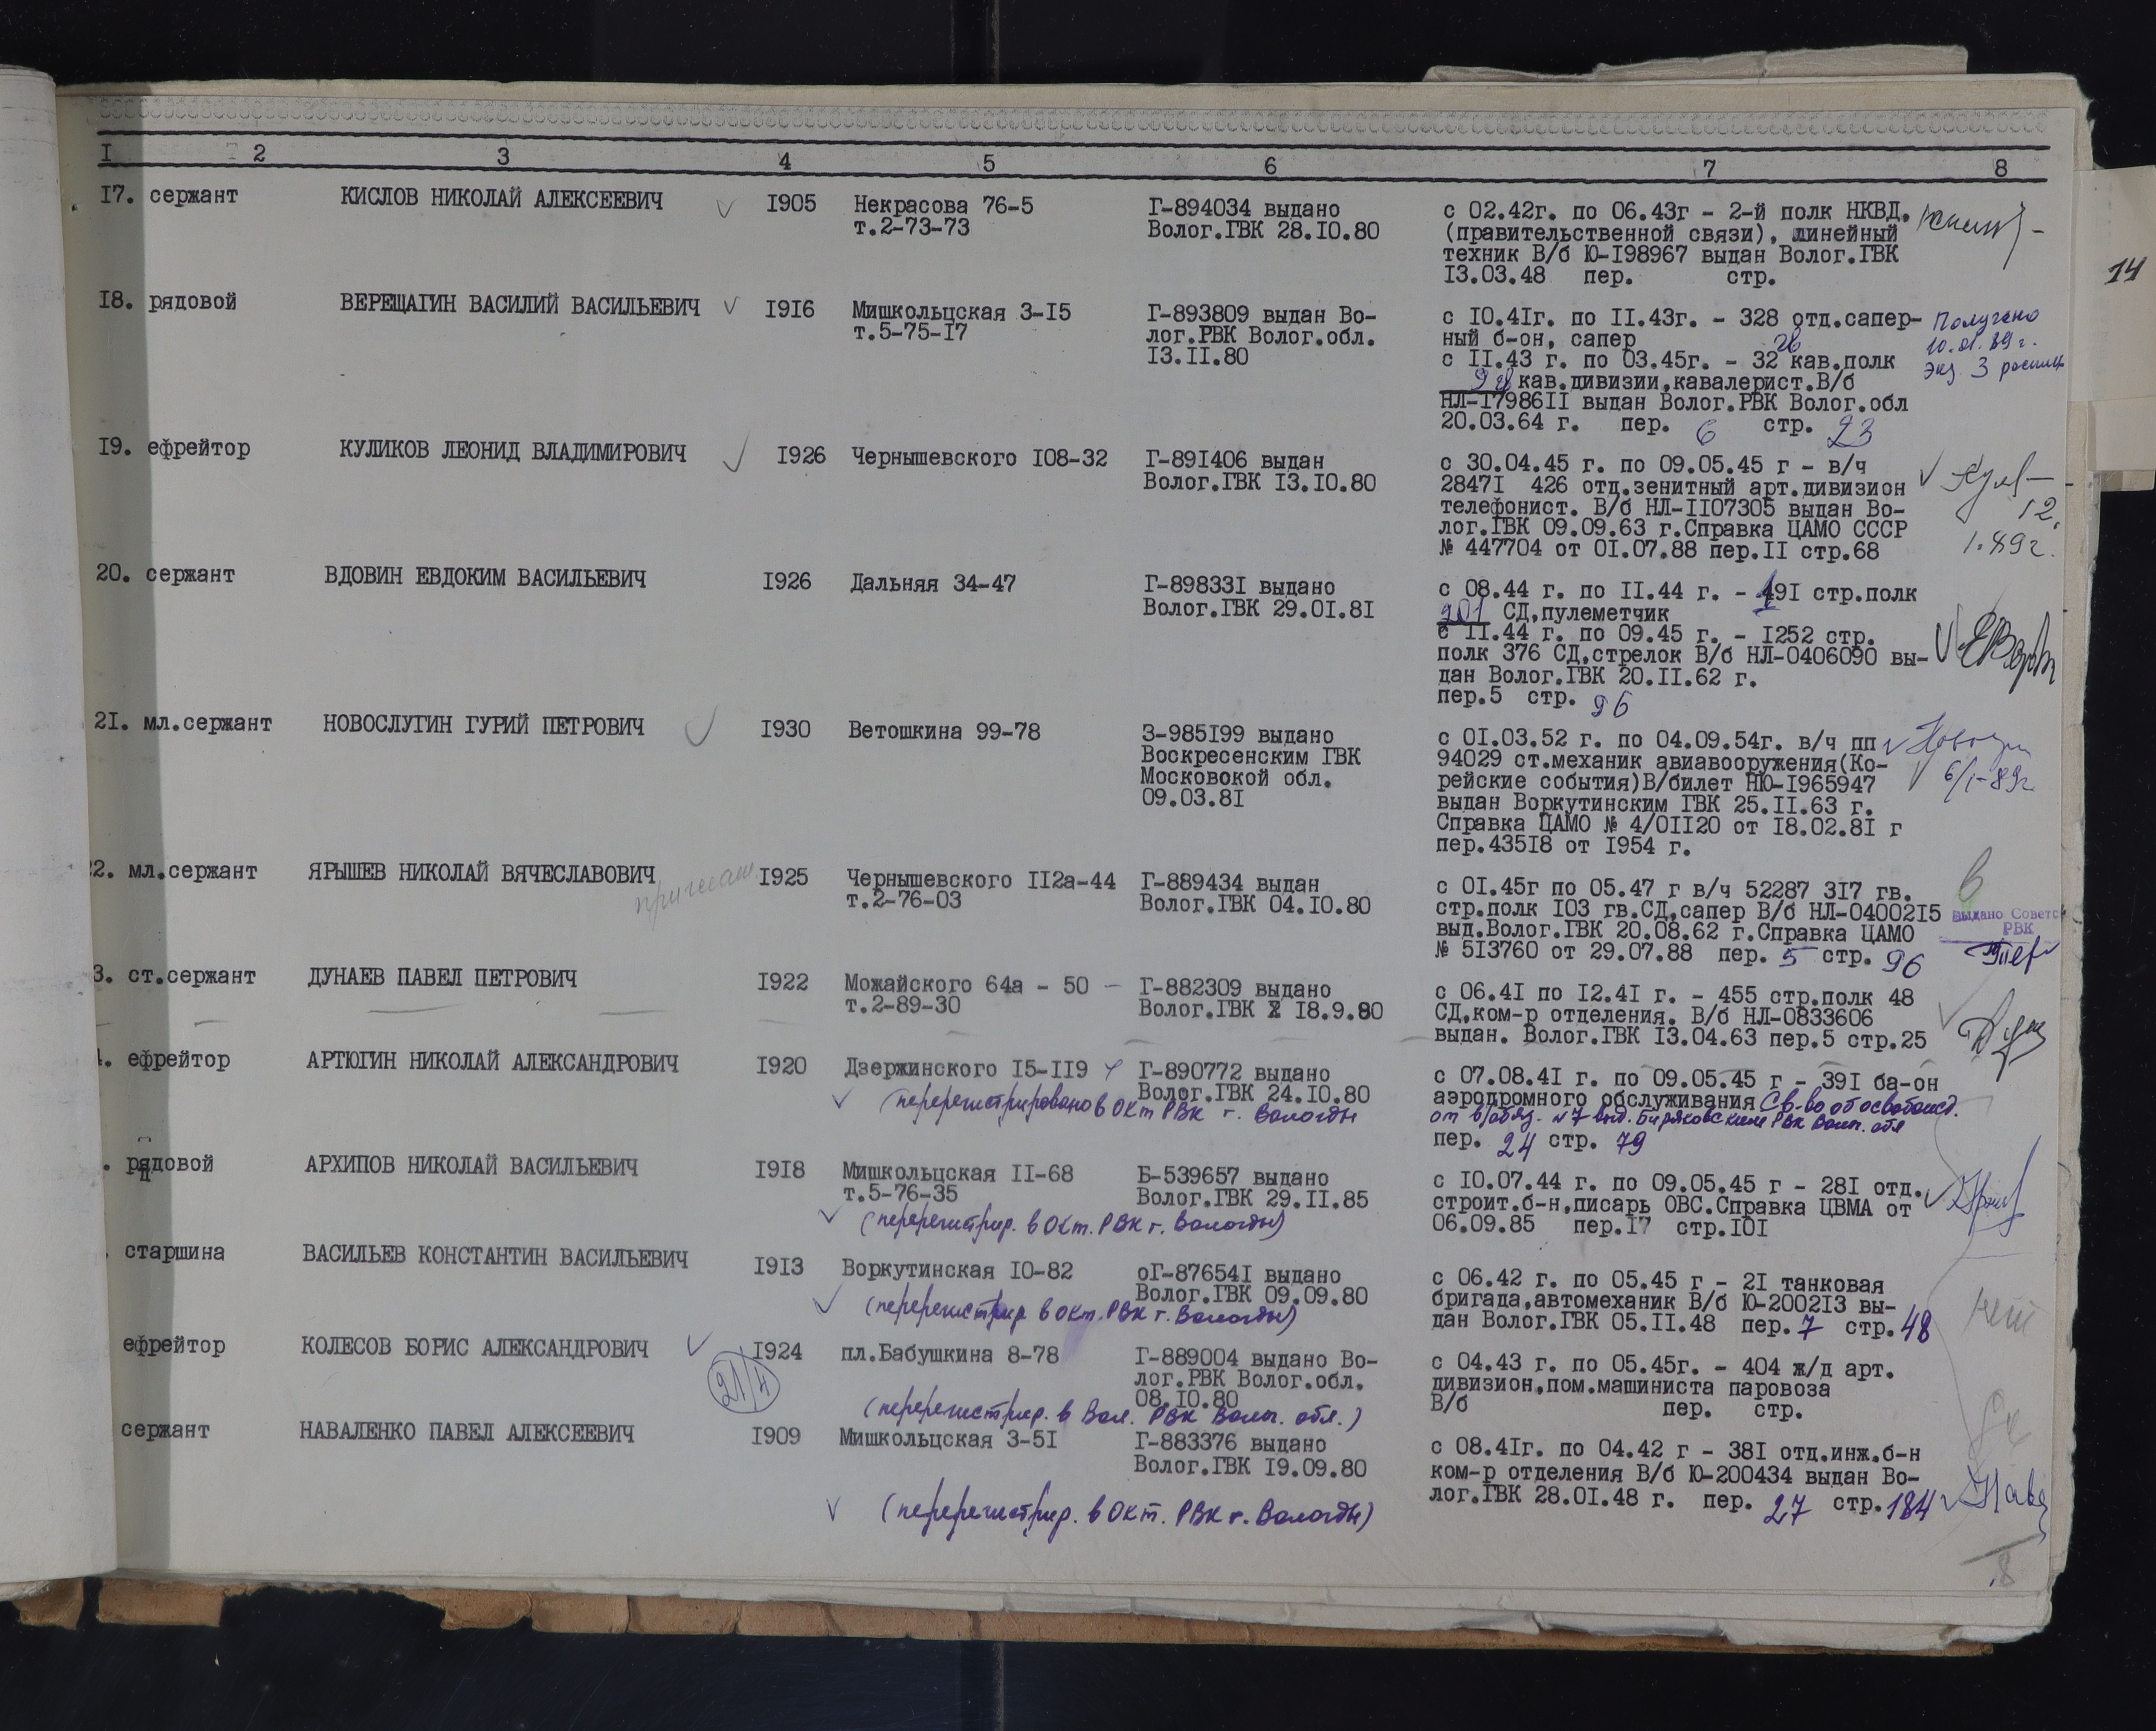 I 2 3 4 5 6 7 8
14
I7. сержант КИСЛОВ НИКОЛАЙ АЛЕКСЕЕВИЧ I905 Некрасова 76-5 Г-894034 выдано с 02.42г. по 06.43г - 2-й полк НКВД.
т.2-73-73 Волог.ГВК 28.I0.80 (правительственной связи), линейный
техник В/б Ю-I98967 выдан Волог.ГВК
I3.03.48 пер. стр.
I8. рядовой ВЕРЕЩАГИН ВАСИЛИЙ ВАСИЛЬЕВИЧ I9I6 Мишкольцская 3-I5 Г-893809 выдан Во- с I0.4Iг. по II.43г. - 328 отд.сапер- Получено
т.5-75-I7 лог.РВК Волог.обл. ный б-он, сапер 10.01.89г.
I3.II.80 с II.43 г. по 03.45г. - 32 кав.полк экз 3
кав.дивизии,кавалерист.В/б
НЛ-I7986II выдан Волог.РВК Волог.обл
20.03.64 г. пер. 6 стр. 23
I9. ефрейтор КУЛИКОВ ЛЕОНИД ВЛАДИМИРОВИЧ I926 Чернышевского I08-32 Г-89I406 выдан с 30.04.45 г. по 09.05.45 г - в/ч
Волог.ГВК I3.I0.80 2847I 426 отд.зенитный арт.дивизион
телефонист. В/б НЛ-II07305 выдан Во- 12.
лог.ГВК 09.09.63 г.Справка ЦАМО СССР
№ 447704 от 0I.07.88 пер.II стр.68 1.89г.
20. сержант ВДОВИН ЕВДОКИМ ВАСИЛЬЕВИЧ I926 Дальняя 34-47 Г-89833I выдано с 08.44 г. по II.44 г. - 19I стр.полк
Волог.ГВК 29.0I.8I 201 СД,пулеметчик
с II.44 г. по 09.45 г. - I252 стр.
полк 376 СД,стрелок В/б НЛ-0406090 вы-
дан Волог.ГВК 20.II.62 г.
пер.5 стр. 96
2I. мл.сержант НОВОСЛУГИН ГУРИЙ ПЕТРОВИЧ I930 Ветошкина 99-78 3-985I99 выдано с 0I.03.52 г. по 04.09.54г. в/ч пп
Воскресенским ГВК 94029 ст.механик авиавооружения(Ко- 6/I-89г
Московокой обл. рейские события)В/билет НЮ-I965947
09.03.8I выдан Воркутинским ГВК 25.II.63 г.
Справка ЦАМО № 4/0II20 от I8.02.8I г
пер.435I8 от I954 г.
2. мл.сержант ЯРЫШЕВ НИКОЛАЙ ВЯЧЕСЛАВОВИЧ приглаш. I925 Чернышевского II2а-44 Г-889434 выдан с 0I.45г по 05.47 г в/ч 52287 3I7 гв.
т.2-76-03 Волог.ГВК 04.I0.80 стр.полк I03 гв.СД,сапер В/б НЛ-04002I5 выдано Советс
выд.Волог.ГВК 20.08.62 г.Справка ЦАМО РВК
№ 5I3760 от 29.07.88 пер. 5 стр. 96
3. ст.сержант ДУНАЕВ ПАВЕЛ ПЕТРОВИЧ I922 Можайского 64а - 50 Г-882309 выдано с 06.4I по I2.4I г. - 455 стр.полк 48
т.2-89-30 Волог.ГВК I8.9.80 СД,ком-р отделения. В/б НЛ-0833606
выдан. Волог.ГВК I3.04.63 пер.5 стр.25
. ефрейтор АРТЮГИН НИКОЛАЙ АЛЕКСАНДРОВИЧ I920 Дзержинского I5-II9 Г-890772 выдано с 07.08.4I г. по 09.05.45 г - 39I ба-он
Волог.ГВК 24.I0.80 аэродромного обслуживания Св-во об освобожд.
(перерегистрировано в Окт РВК г. Вологды от в/обяз. №7 выд. Биряковским РВК Волог. обл
пер. 24 стр. 79
. рядовой АРХИПОВ НИКОЛАЙ ВАСИЛЬЕВИЧ I9I8 Мишкольцская II-68 Б-539657 выдано с I0.07.44 г. по 09.05.45 г - 28I отд.
т.5-76-35 Волог.ГВК 29.II.85 строит.б-н,писарь ОВС.Справка ЦВМА от
(перерегистрир. в Окт. РВК г. Вологды) 06.09.85 пер.I7 стр.I0I
старшина ВАСИЛЬЕВ КОНСТАНТИН ВАСИЛЬЕВИЧ I9I3 Воркутинская I0-82 оГ-87654I выдано с 06.42 г. по 05.45 г - 2I танковая
Волог.ГВК 09.09.80 бригада,автомеханик В/б Ю-2002I3 вы- нет
(перерегистрир в Окт. РВК г. Вологды) дан Волог.ГВК 05.II.48 пер.7 стр.48
ефрейтор КОЛЕСОВ БОРИС АЛЕКСАНДРОВИЧ I924 пл.Бабушкина 8-78 Г-889004 выдано Во- с 04.43 г. по 05.45г. - 404 ж/д арт.
21/4 лог.РВК Волог.обл. дивизион,пом.машиниста паровоза
08.I0.80 В/б пер. стр.
(перерегистрир. в Вол. РВК Волог. обл.)
сержант НАВАЛЕНКО ПАВЕЛ АЛЕКСЕЕВИЧ I909 Мишкольцская 3-5I Г-883376 выдано с 08.4Iг. по 04.42 г - 38I отд.инж.б-н
Волог.ГВК I9.09.80 ком-р отделения В/б Ю-200434 выдан Во-
лог.ГВК 28.0I.48 г. пер. 27 стр.184
(перерегистрир. в Окт. РВК г. Вологды)
8